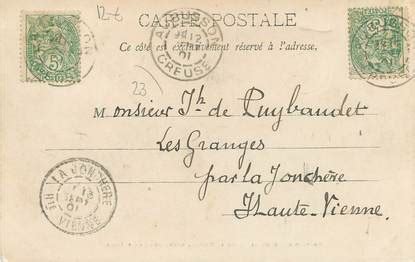 12-6
CARTE POSTALE
Ce côté est exclusivement réservé à l'adresse.
AUBUSSON
CREUSE
5
23
Monsieur Jh de Puybaudet
Les Granges
par la Jonchère
Haute-Vienne.
LA JONCHERE
HTE VIENNE